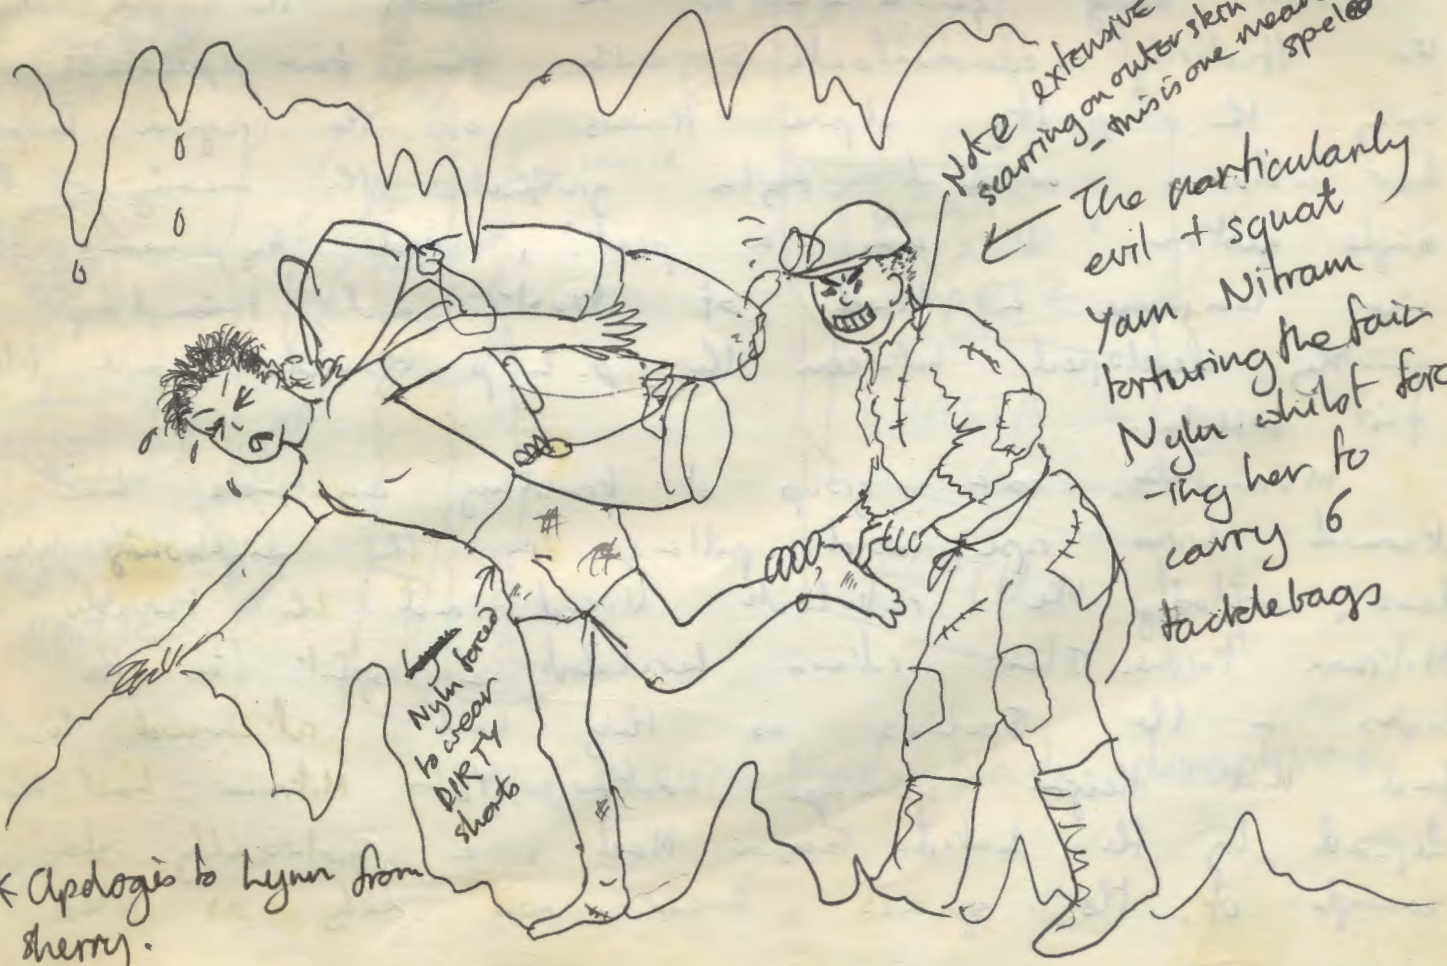 Note extensive
scarring on outer skin
- this is one mean
speleo
The particularly
evil + squat
Yam Nitram
torturing the fair
Nyln whilst forc
-ing her to
carry 6
tacklebags
Nyln forced
to wear
DIRTY
shorts
* Apologies to Lynn from
Sherry.